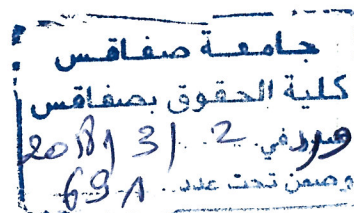 جامعة صفاقس
كلية الحقوق بصفاقس
ورد في 2 / 3 / 2018
وضمن تحت عدد 691